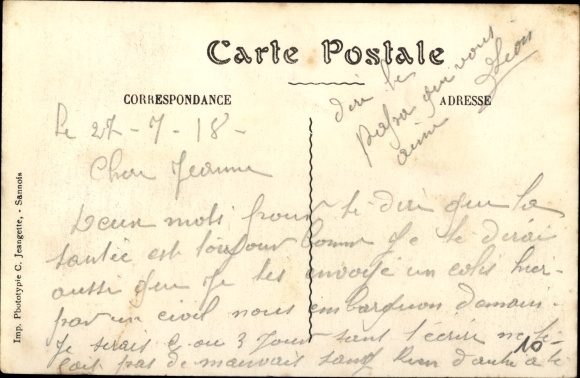 Carte Postale
CORRESPONDANCE
ADRESSE
Le 27-7-18-
Cher Jeanne
Deux mots pour te dire que la
santée est toujour bonne Je te dirai
aussi que Je tes envoyé un colis hier
par un civil nous embarquon demain.
Je serais 2 ou 3 Jour sans t'écrire ne te
fait pas de mauvais sang Rien d'autre a te
dire le
papa qui vous
aime
Léon
10
Imp. Phototypie C. Jeangette, - Sannois